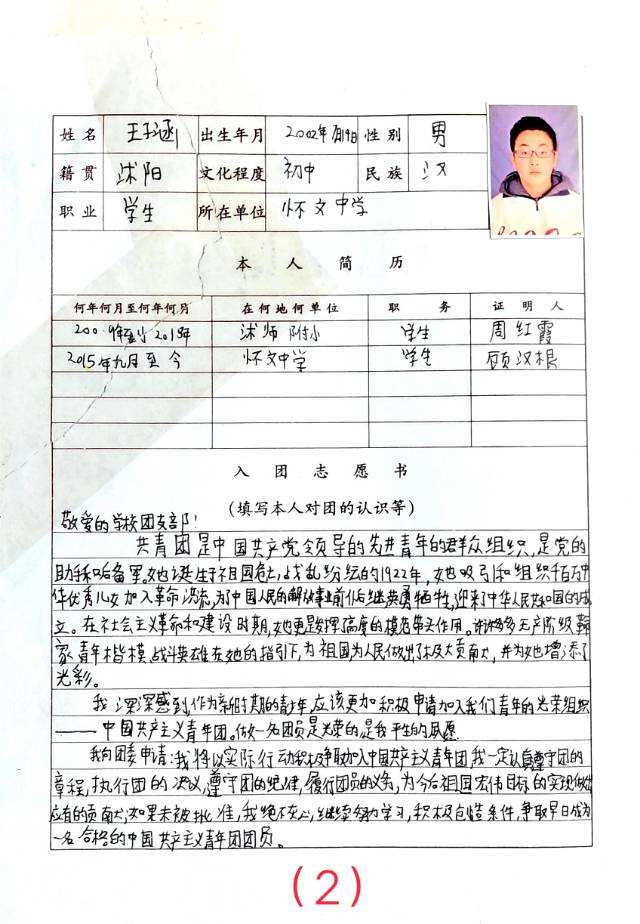 姓名 王子涵 出生年月 2002年 月19日 性别 男
籍贯 沭阳 文化程度 初中 民族 汉
职业 学生 所在单位 怀文中学
本人简历
何年何月至何年何月 在何地何单位 职务 证明人
沭师附小 学生 周红霞
2015年九月至今 怀文中学 学生 顾汉根
入团志愿书
(填写本人对团的认识等)
敬爱的学校团支部!
共青团是中国共产党领导的先进青年的群众组织,是党的
助手和后备军,她诞生于祖国危亡,战乱纷纭的1922年,她吸引和组织千百万中
华优秀儿女加入革命洪流,为中国人民的解放事业前仆后继英勇牺牲,迎来了中华人民共和国的成
立。在社会主义革命和建设时期,她更是发挥高度的模范带头作用。许许多多无产阶级
家青年楷模,战斗英雄在她的指引下,为祖国为人民做出了极大贡献,并为她增添了
光彩。
我深深感到,作为新时期的青少年,应该更加积极申请加入我们青年的光荣组织
——中国共产主义青年团。做一名团员是光荣的是我平生的夙愿
我向团委申请:我将以实际行动积极争取加入中国共产主义青年团,我一定认自遵守团的
章程,执行团的决议,遵守团的纪律,履行团员的义务,为今后祖国宏伟目标的实现做出
应有的贡献,如果未被批准,我绝不灰心,继续努力学习,积极创造条件,争取早日成为
一名合格的中国共产主义青年团团员。
(2)